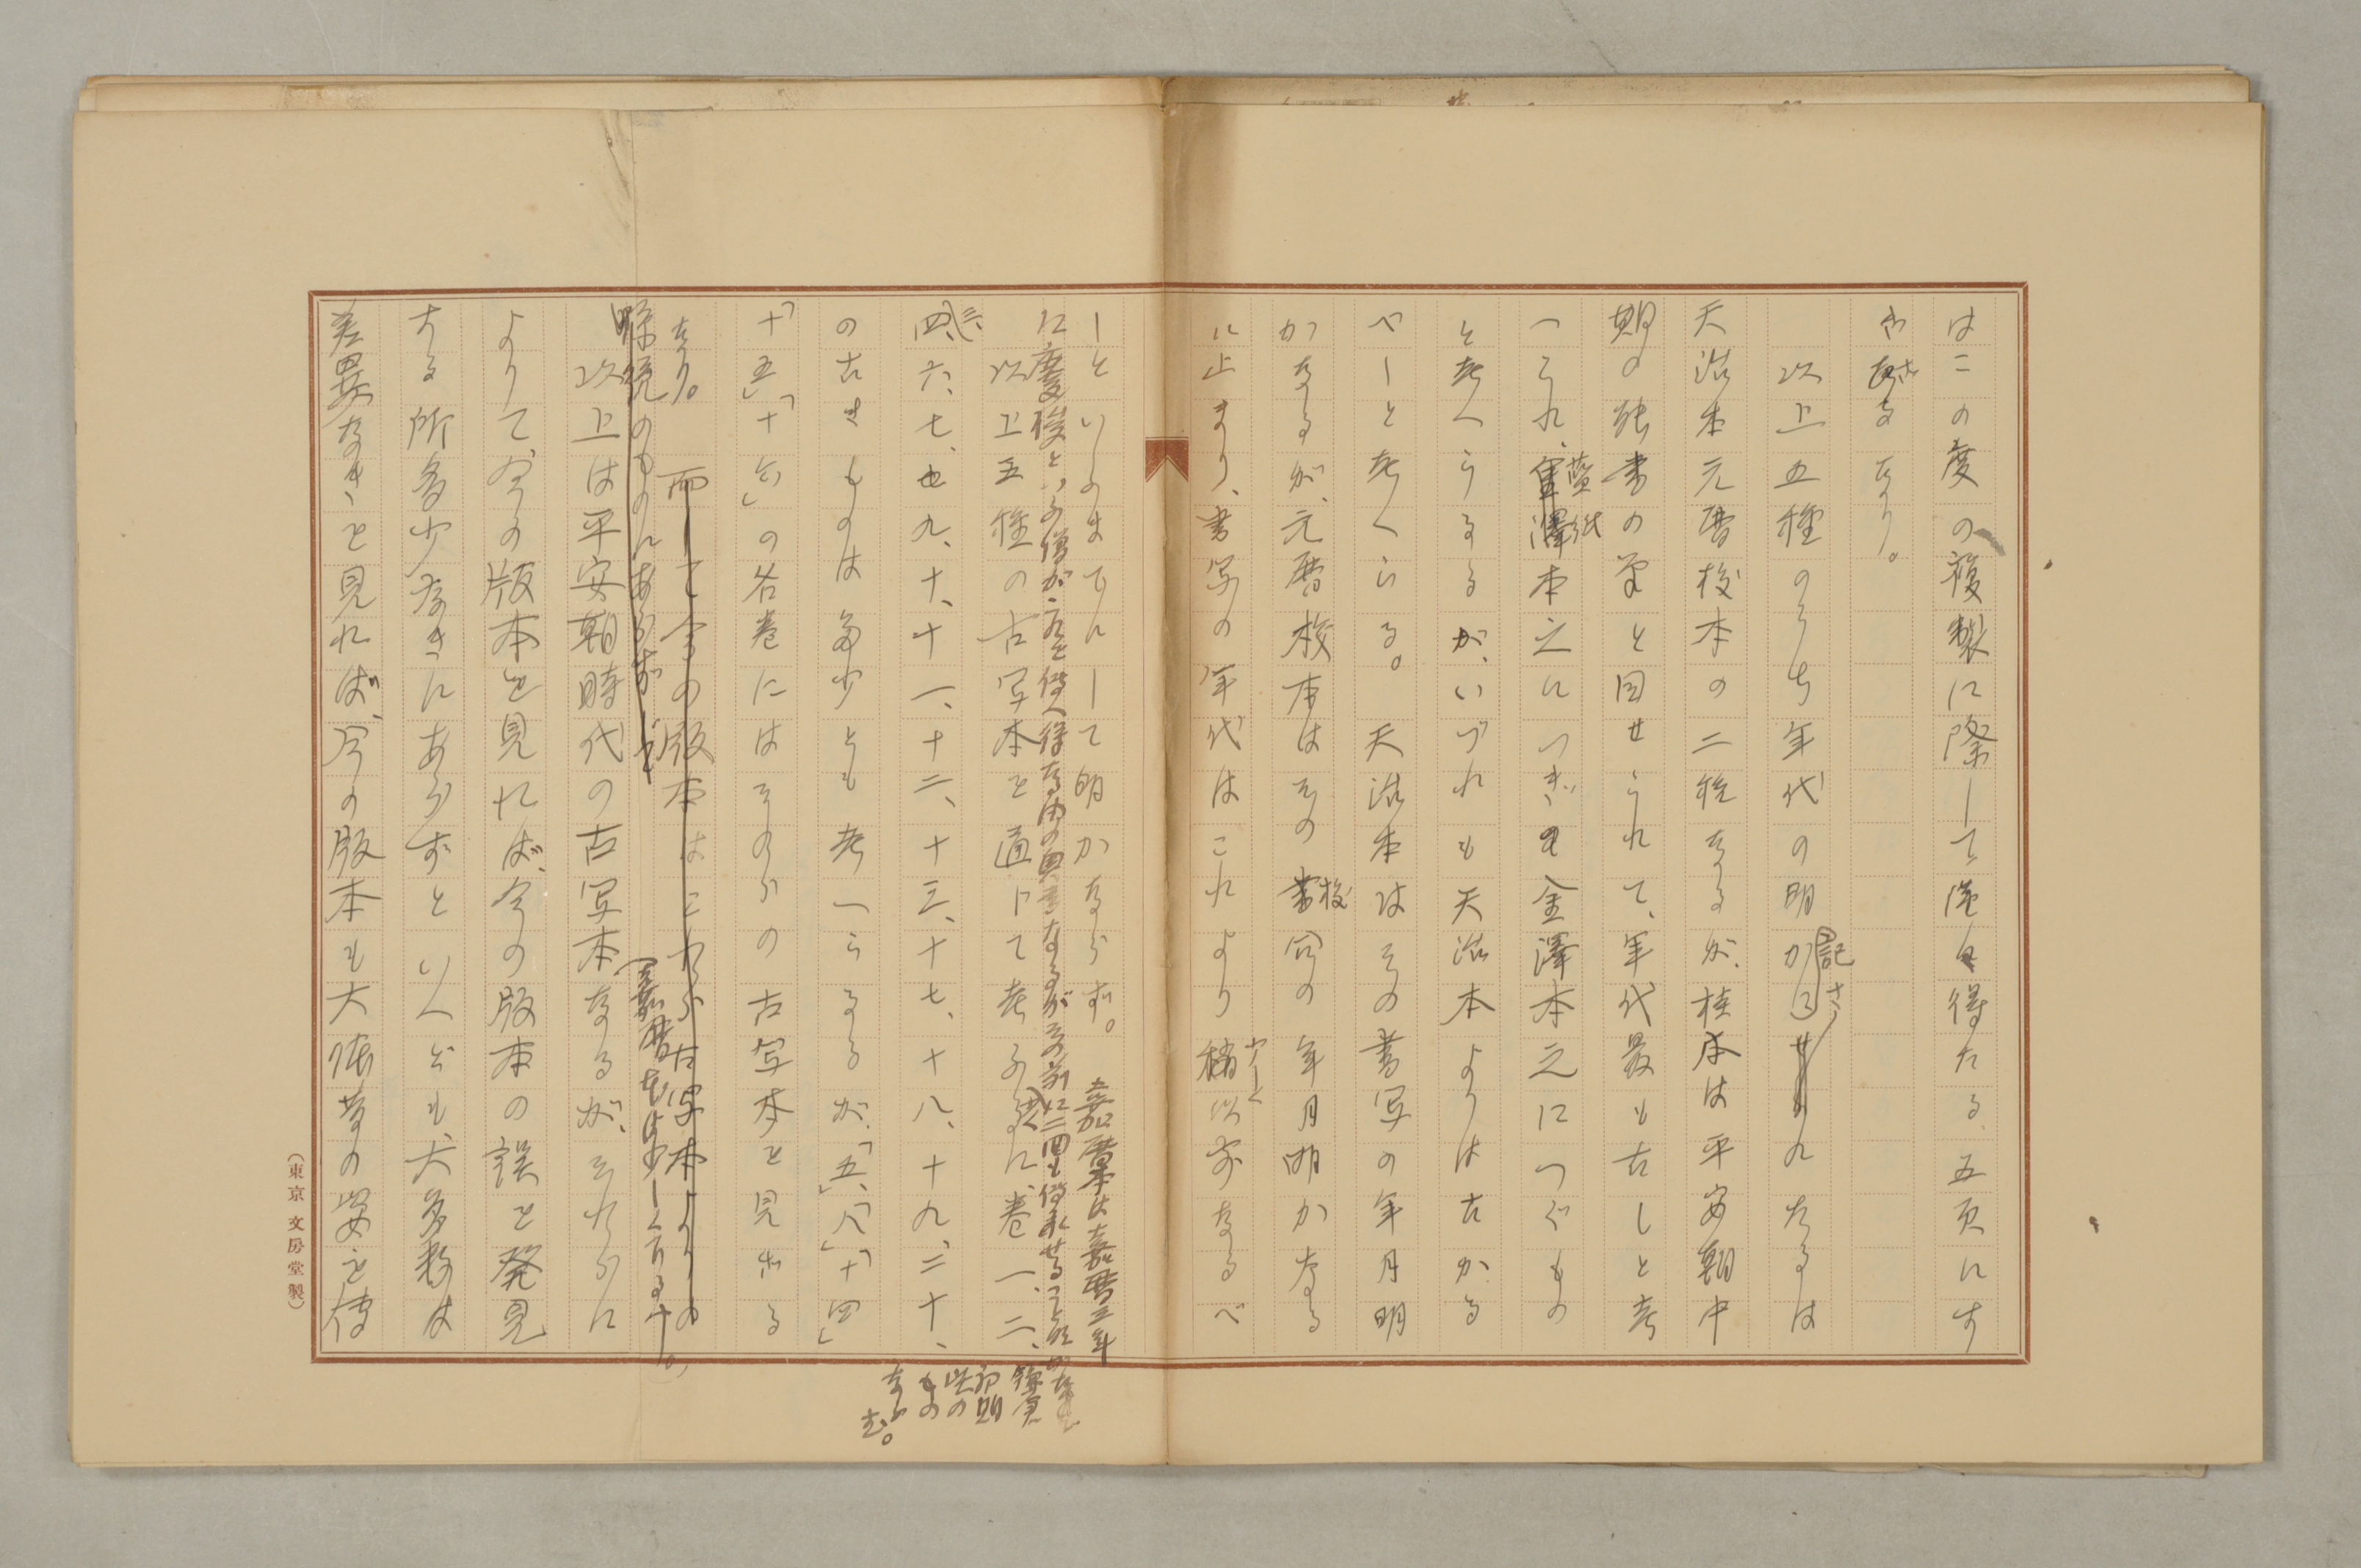 はこの度の複製に際して漢を得たる五頁にす
ぎざるなり。
以上五種のうち年代の明かに記されたるは
天治本元暦校本の二種なるが、桂本は平安朝中
期の能書の筆と目せられて、年代最も古しと考
へられ、藍紙本之につぎ金澤本之につぐもの
と考へらるるが、いづれも天治本よりは古かる
べしと考へらる。天治本はその書写の年月明
かなるが、元暦校本はその校合の年月明かなる
に止まり、書写の年代はこれより少しく以前なるべ
しといふまでにして明かならず。嘉暦本は嘉暦三年
に慶俊といふ僧が之を傳へ得たる由の奥書なるがその前に三四も傳承せること
以上五種の古写本を通じて考ふるに、巻一、二、
三、四、六、七、九、十、十一、十二、十三、十七、十八、十九、二十、
鎌倉
初期
以の
もの
ならむ。
の古きものは多少とも考へらるるが、「五」、「八」「十四」
「十五」「十六」の各巻にはそのらの古写本を見ざる
なり。而して今の版本はこれら古写本よりの
願貌のものにあらずして
(嘉暦本は少しく下るす。)
以上は平安朝時代の古写本なるが、それらに
よりて、今の版本を見れば、今の版本の誤を発見
する所多少なきにあらずといへども、大多数は
差異なきを見れば、今の版本も大体昔の姿を傳
(東京 文房堂製)